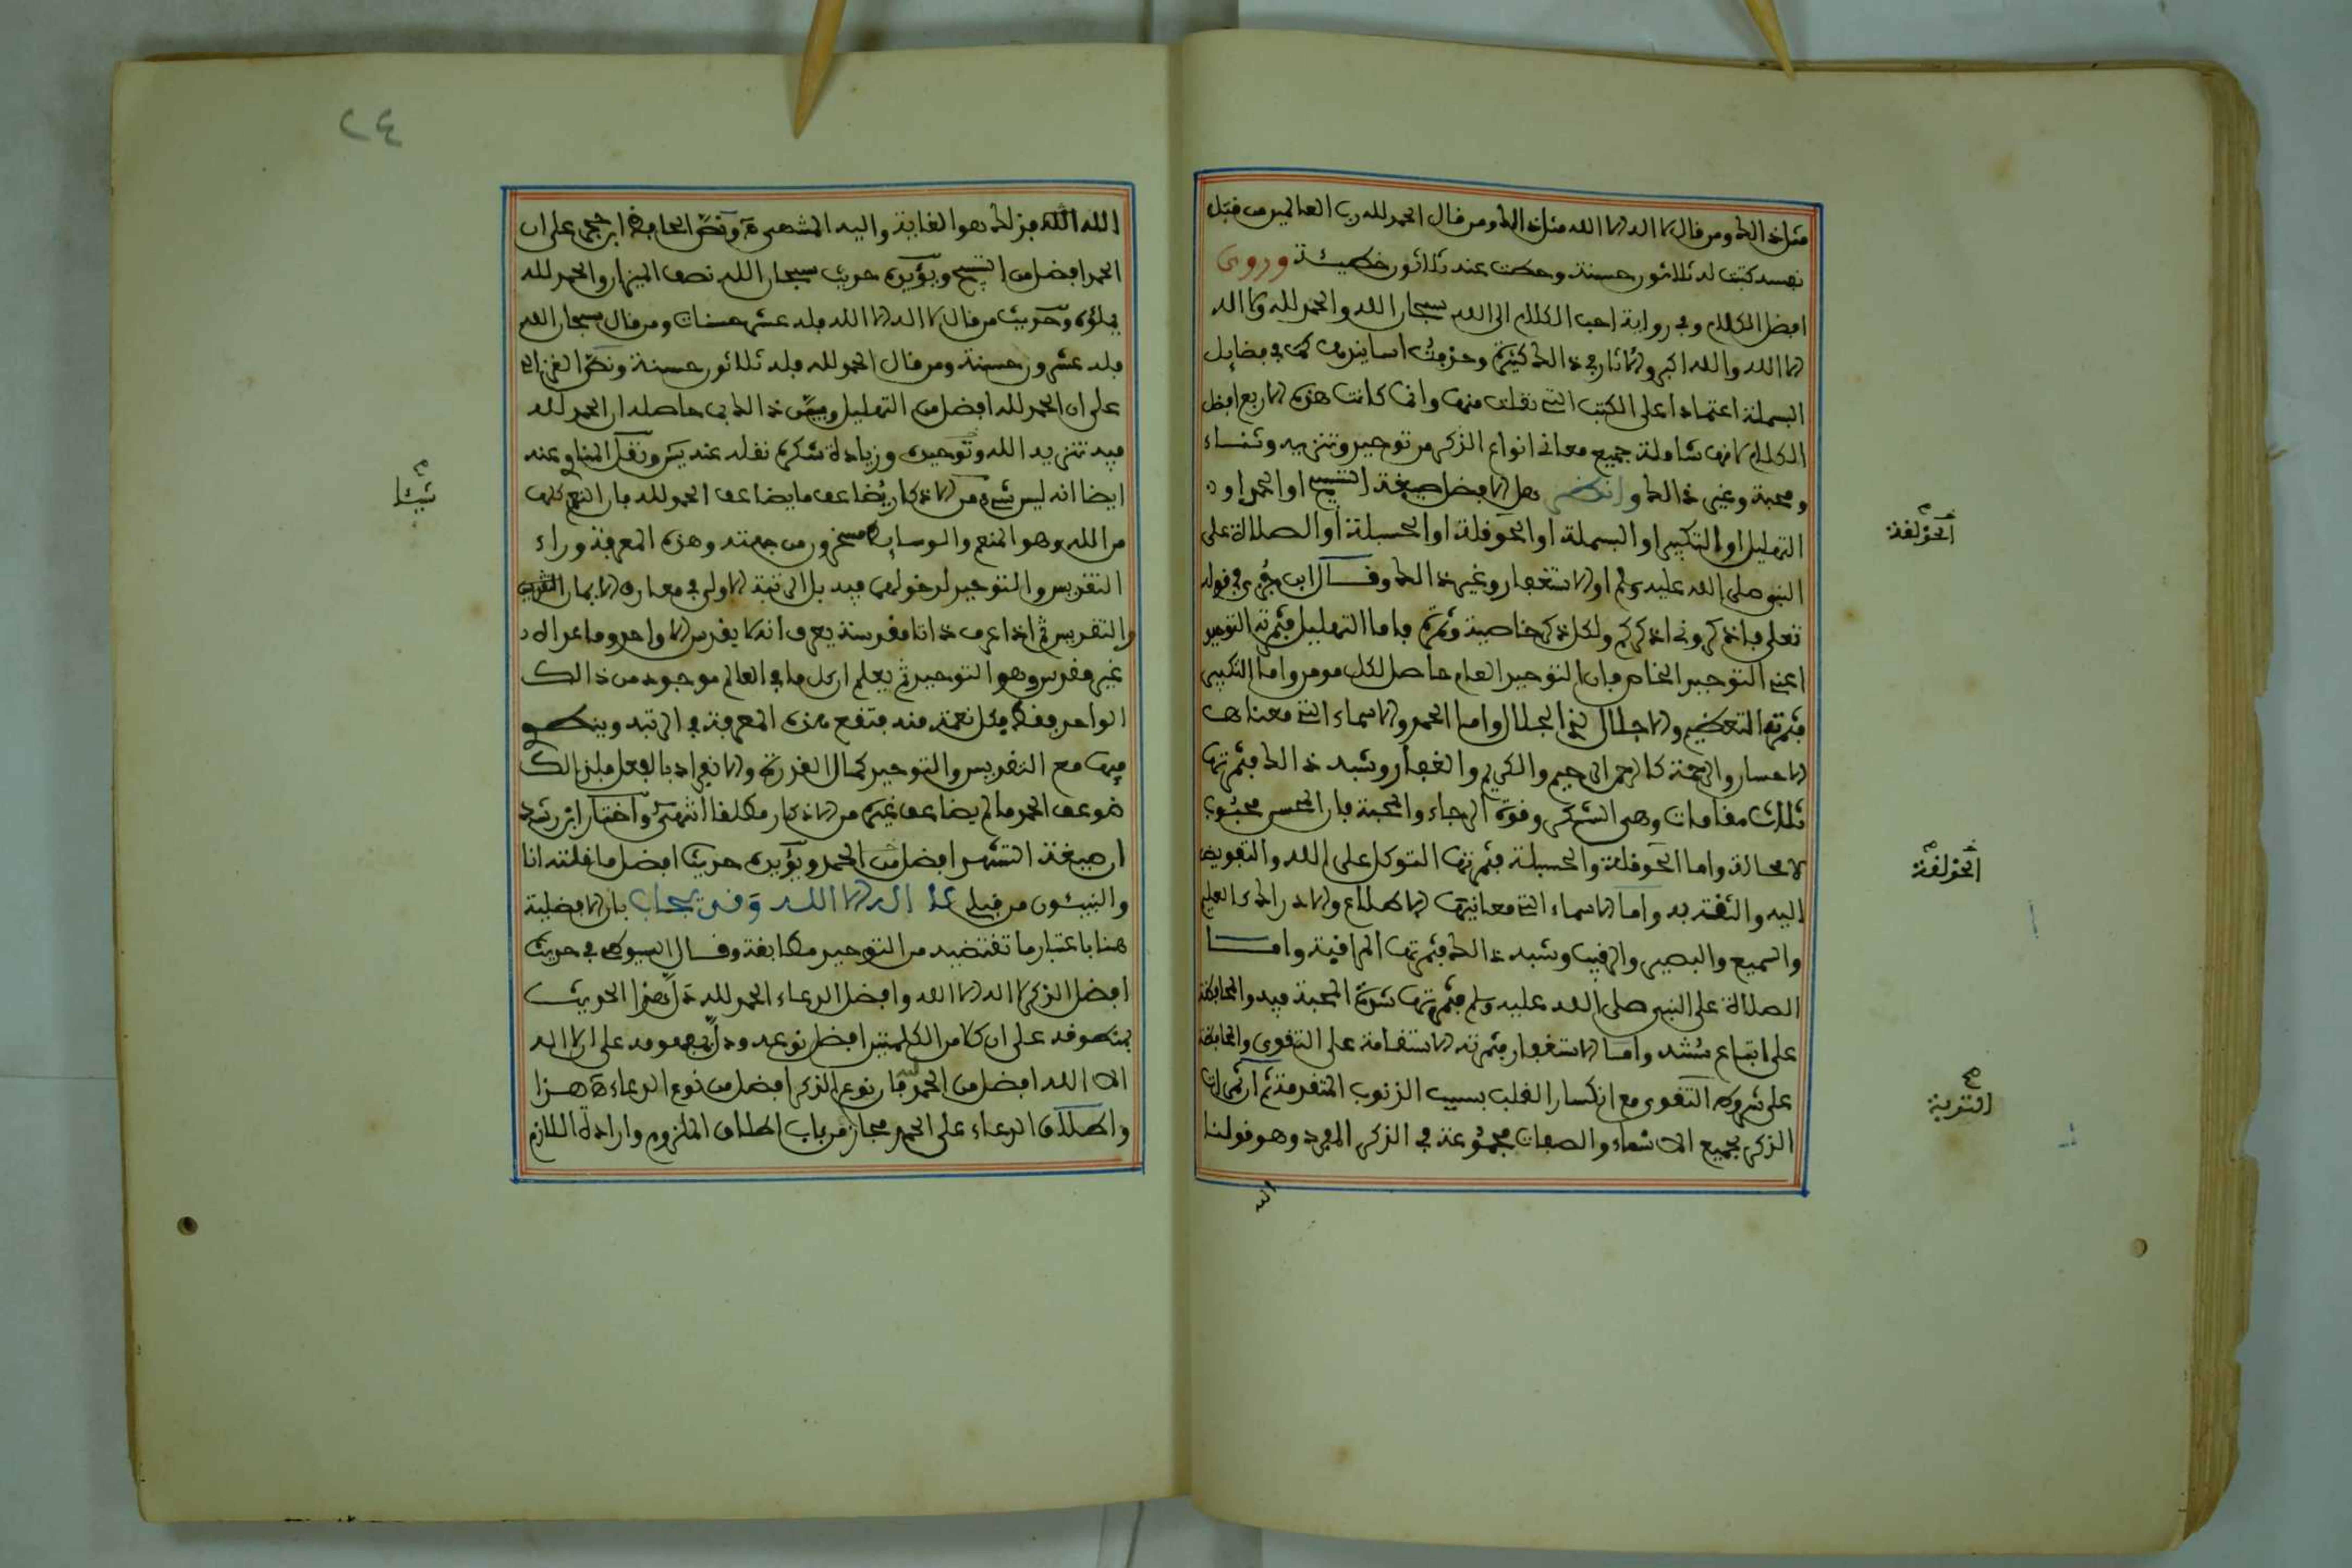 مثل ذالك ومن قال لا اله الا الله مثل ذالك ومن قال الحمد لله رب العالمين من قبل
نفسه كتبت له ثلاثون حسنة وحطت عنه ثلاثون خطيئة وروى
افضل الكلام وفي رواية احب الكلام الى الله سبحان الله والحمد لله ولا اله
الا الله والله اكبر والاثار في ذالك كثيرة وحذفت اسانيدها كما في فضايل
البسملة اعتمادا على الكتب التي نقلت منها وانما كانت هذه الاربع افضل
الكلام لانها شاملة جميع معاني انواع الذكر من توحيد وتنزيه وثناء
ومحبة وغير ذالك وانظر هل الافضل صيغة التسبيح او الحمد او
التهليل او التكبير او البسملة او الحوقلة او الحسبلة او الصلاة على
النبي صلى الله عليه وسلم او الاستغفار وغير ذالك وقال ابن جزي في قوله
تعلى فاذكروني اذكركم ولكل ذكر خاصية وثمرة فاما التهليل فثمرته التوحيد
اعني التوحيد الخاص فان التوحيد العام حاصل لكل مومن واما التكبير
فثمرته التعظيم والاجلال لذي الجلال واما الحمد والاسماء التي معناها
الاحسان والرحمة كالرحمن الرحيم والكريم والغفار وشبه ذالك فثمرتها
ثلاث مقامات وهي الشكر وقوة الرجاء والمحبة فان المحسن محبوب
لا محالة واما الحوقلة والحسبلة فثمرتها التوكل على الله والتفويض
اليه والثقة به واما الاسماء التي معانيها الاطلاع والادراك كالعليم
والسميع والبصير والرقيب وشبه ذالك فثمرتها المراقبة واما
الصلاة على النبي صلى الله عليه وسلم فثمرتها شدة المحبة فيه والمحافظة
على اتباع سنته واما الاستغفار فثمرته الاستقامة على التقوى والمحافظة
على شروط التقوى مع انكسار القلب بسبب الذنوب المتقدمة ثم ان ثمرات
الذكر بجميع الاسماء والصفات مجموعة في الذكر المفرد وهو قولنا
الله
الحولقة
الحولقة
التوبة
٢٤
الله الله فذلك هو الغاية واليه المنتهى ونص الحافظ ابن حجر على ان
الحمد افضل من التسبيح ويؤيده حديث سبحان الله نصف الميزان والحمد لله
يملؤه وحديث من قال لا اله الا الله فله عشر حسنات ومن قال سبحان الله
فله عشرون حسنة ومن قال الحمد لله فله ثلاثون حسنة ونص الغزالي
على ان الحمد لله افضل من التهليل وبين ذالك بما حاصله ان الحمد لله
فيه تنزيه الله وتوحيده وزيادة شكره نقله عنه يس ونقل المناوي عنه
ايضا انه ليس شيء من الاذكار يضاعف ما يضاعف الحمد لله فان النعم كلها
من الله وهو المنعم والوسايط مسخرون من جهته وهذه المعرفة وراء
التقديس والتوحيد لدخولهما فيه بل الرتبة الاولى في معارف الايمان التقديس
والتقديس ثم اذا عرف ذاتا مقدسة يعرف انه لا يقدس الا واحد وما عداه
غير مقدس وهو التوحيد ثم يعلم ان كل ما في العالم موجود من ذالك
الواحد فقط فكل نعمة منه فتقع هذه المعرفة في الرتبة وينطوي
فيها مع التقديس والتوحيد كمال القدرة والانفراد بالفعل فلذالك
ضوعف الحمد ما لم يضاعف غيره من الاذكار مطلقا انتهى واختار ابن رشد
ان صيغة التشهد افضل من الحمد ويؤيده حديث افضل ما قلته انا
والنبيئون من قبلي لا اله الا الله وقد يجاب بان الافضلية
هنا باعتبار ما تقتضيه من التوحيد مطابقة وقال السيوطي في حديث
افضل الذكر لا اله الا الله وافضل الدعاء الحمد لله دل هذا الحديث
بمنطوقه على ان كلا من الكلمتين افضل نوعه ودل بمفهومه على ان لا اله
الا الله افضل من الحمد لله فان نوع الذكر افضل من نوع الدعاء هذا
واطلاق الدعاء على الحمد مجاز من باب اطلاق الملزوم وارادة اللازم
شيئا